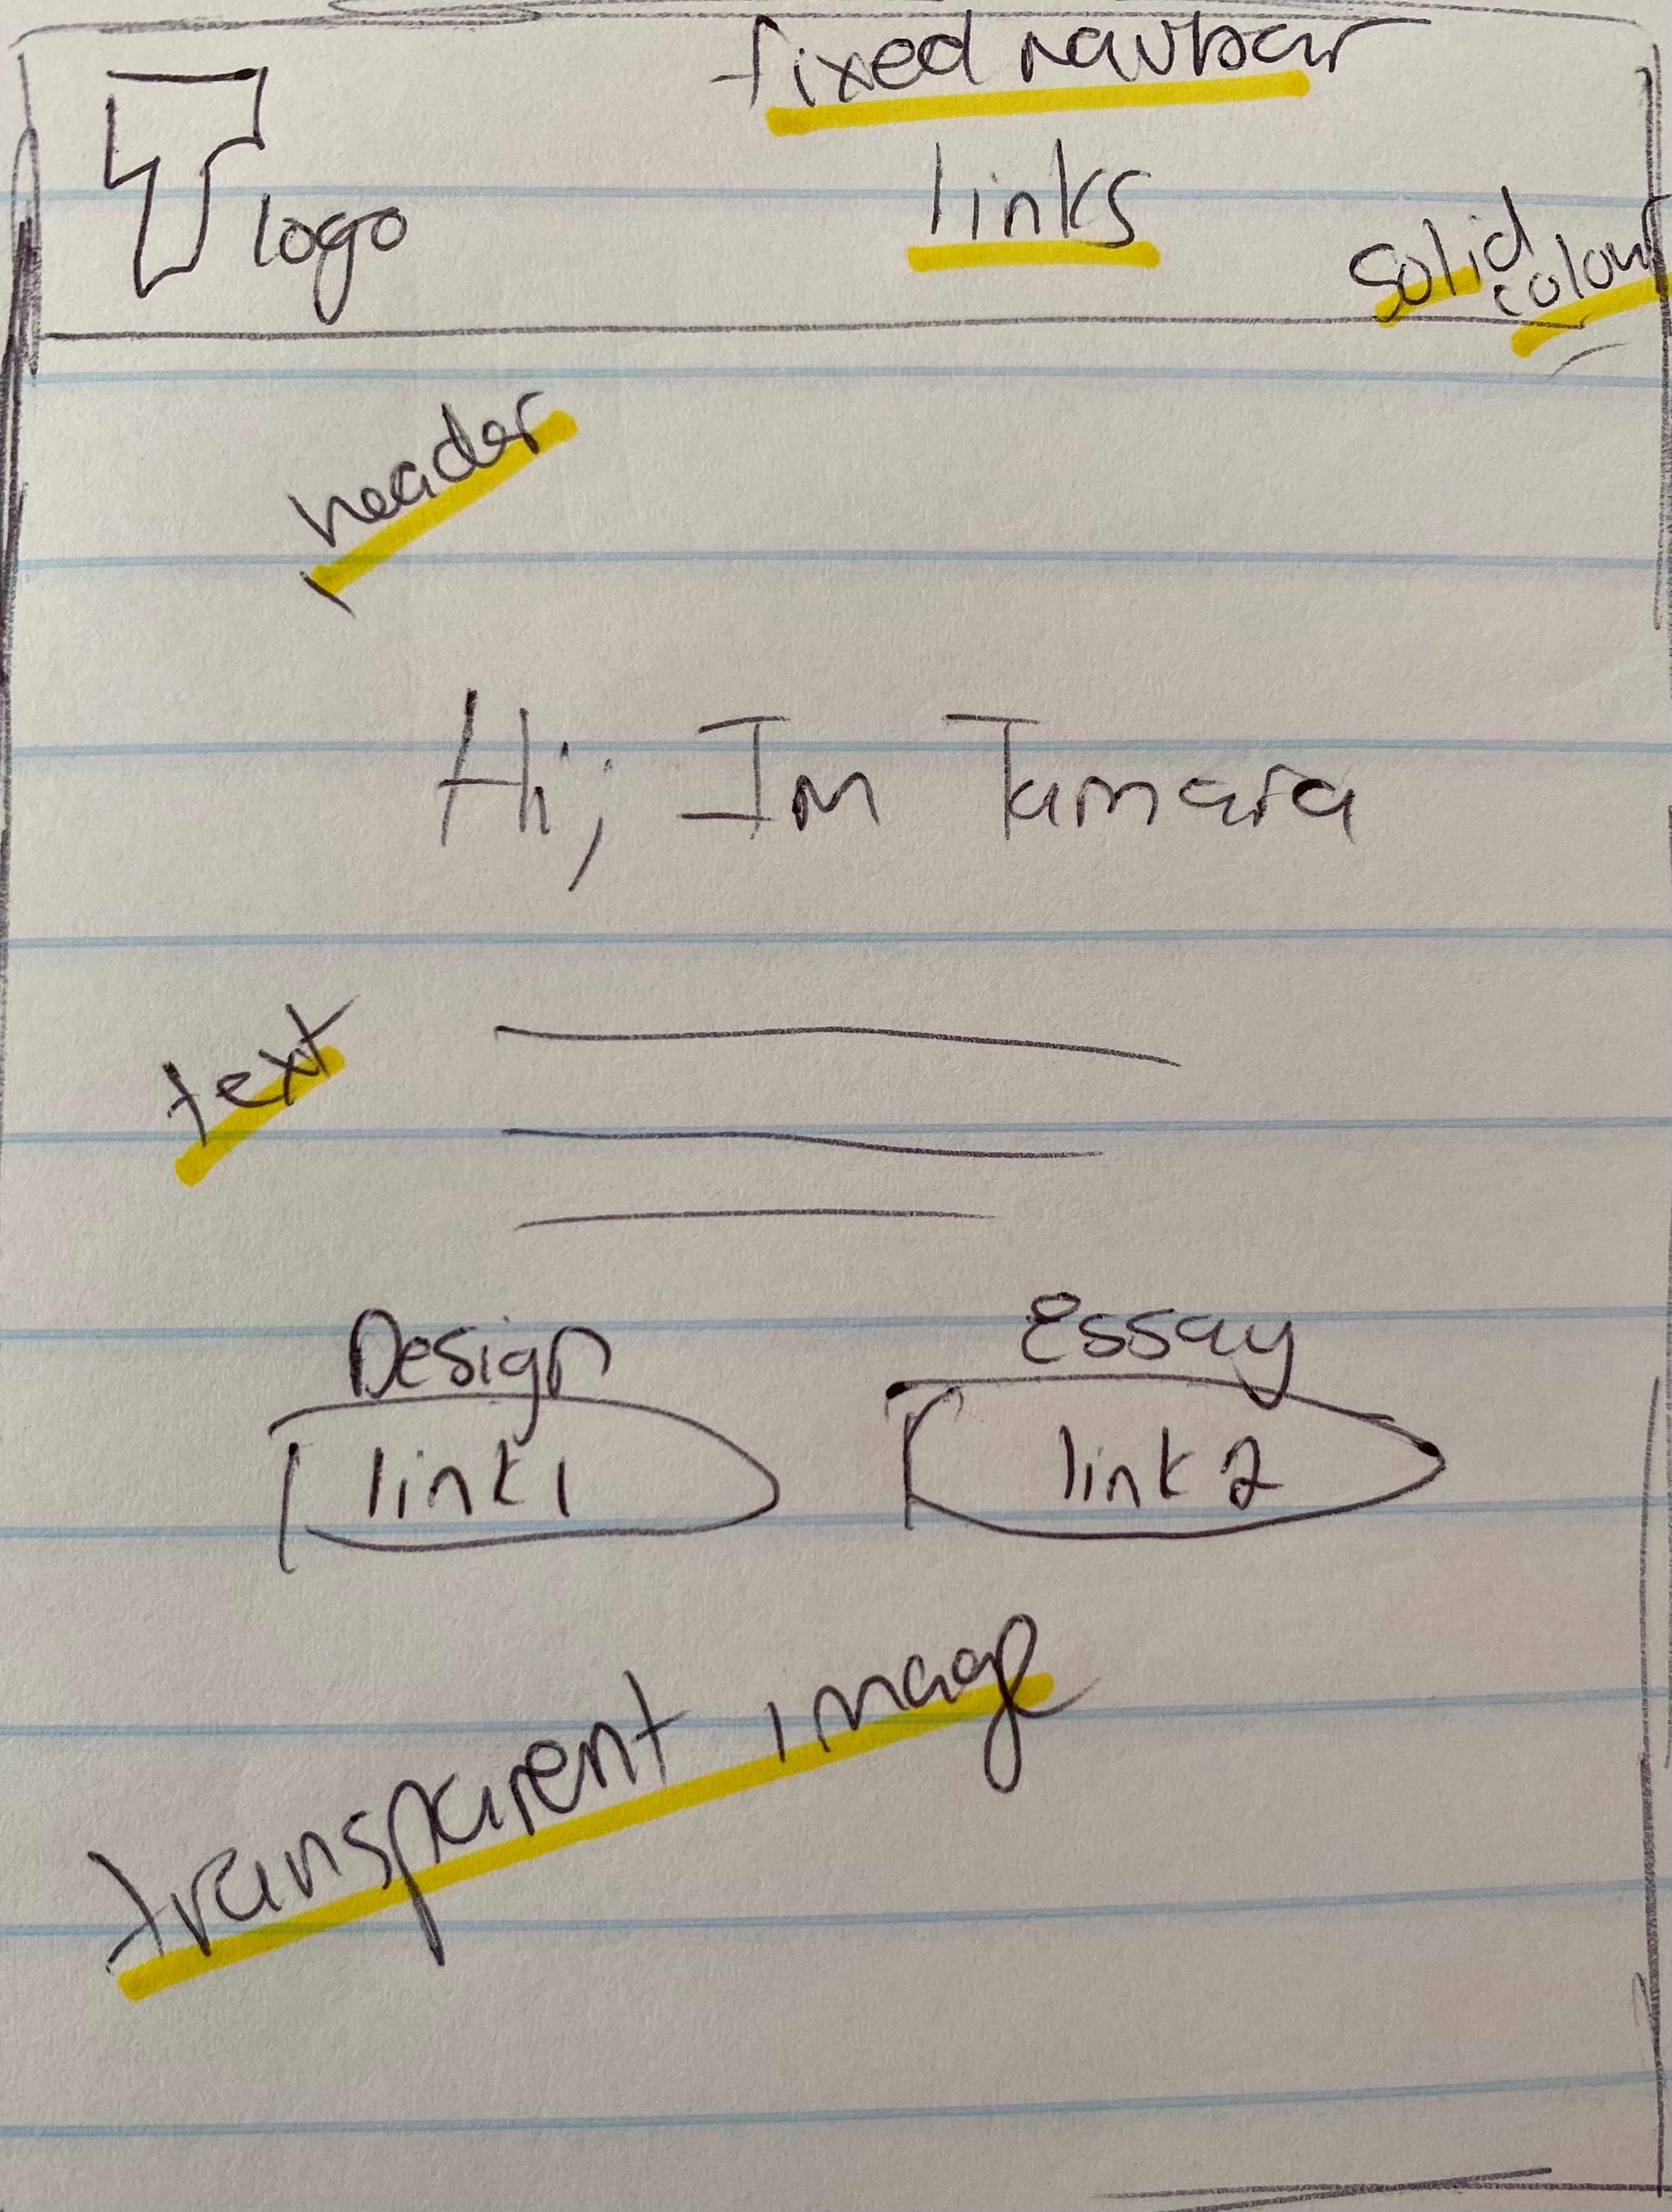 fixed navbar
links
logo
solid colour
header
Hi; Im Tamara
text
Design
link1
Essay
link 2
transparent image